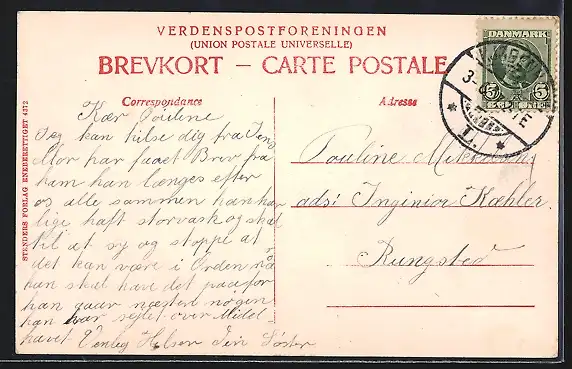 VERDENSPOSTFORENINGEN
(UNION POSTALE UNIVERSELLE)
BREVKORT — CARTE POSTALE
DANMARK
5 5
Correspondance
Adresse
STENDERS FORLAG ENEBERETTIGET 4372
Kær Pouline
Jeg kan hilse dig fra
Mor har faaet Brev fra
ham han længes efter
os alle sammen han har
lige haft storvask og skal
til at sy og stoppe at
det kan være i Orden naar
han skal have det paa for
han gaar næsten nogen
han har sejlet over Middel-
havet Venlig Hilsen Din Søster
Pouline
ads: Inginiør Kæhler
Rungsted